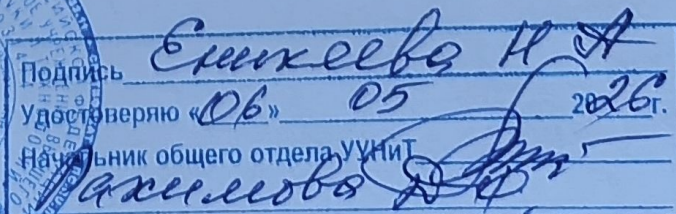 Подпись Еникеева Н А
Удостоверяю «06» 05 2026г.
Начальник общего отдела УУНиТ
Рахимова